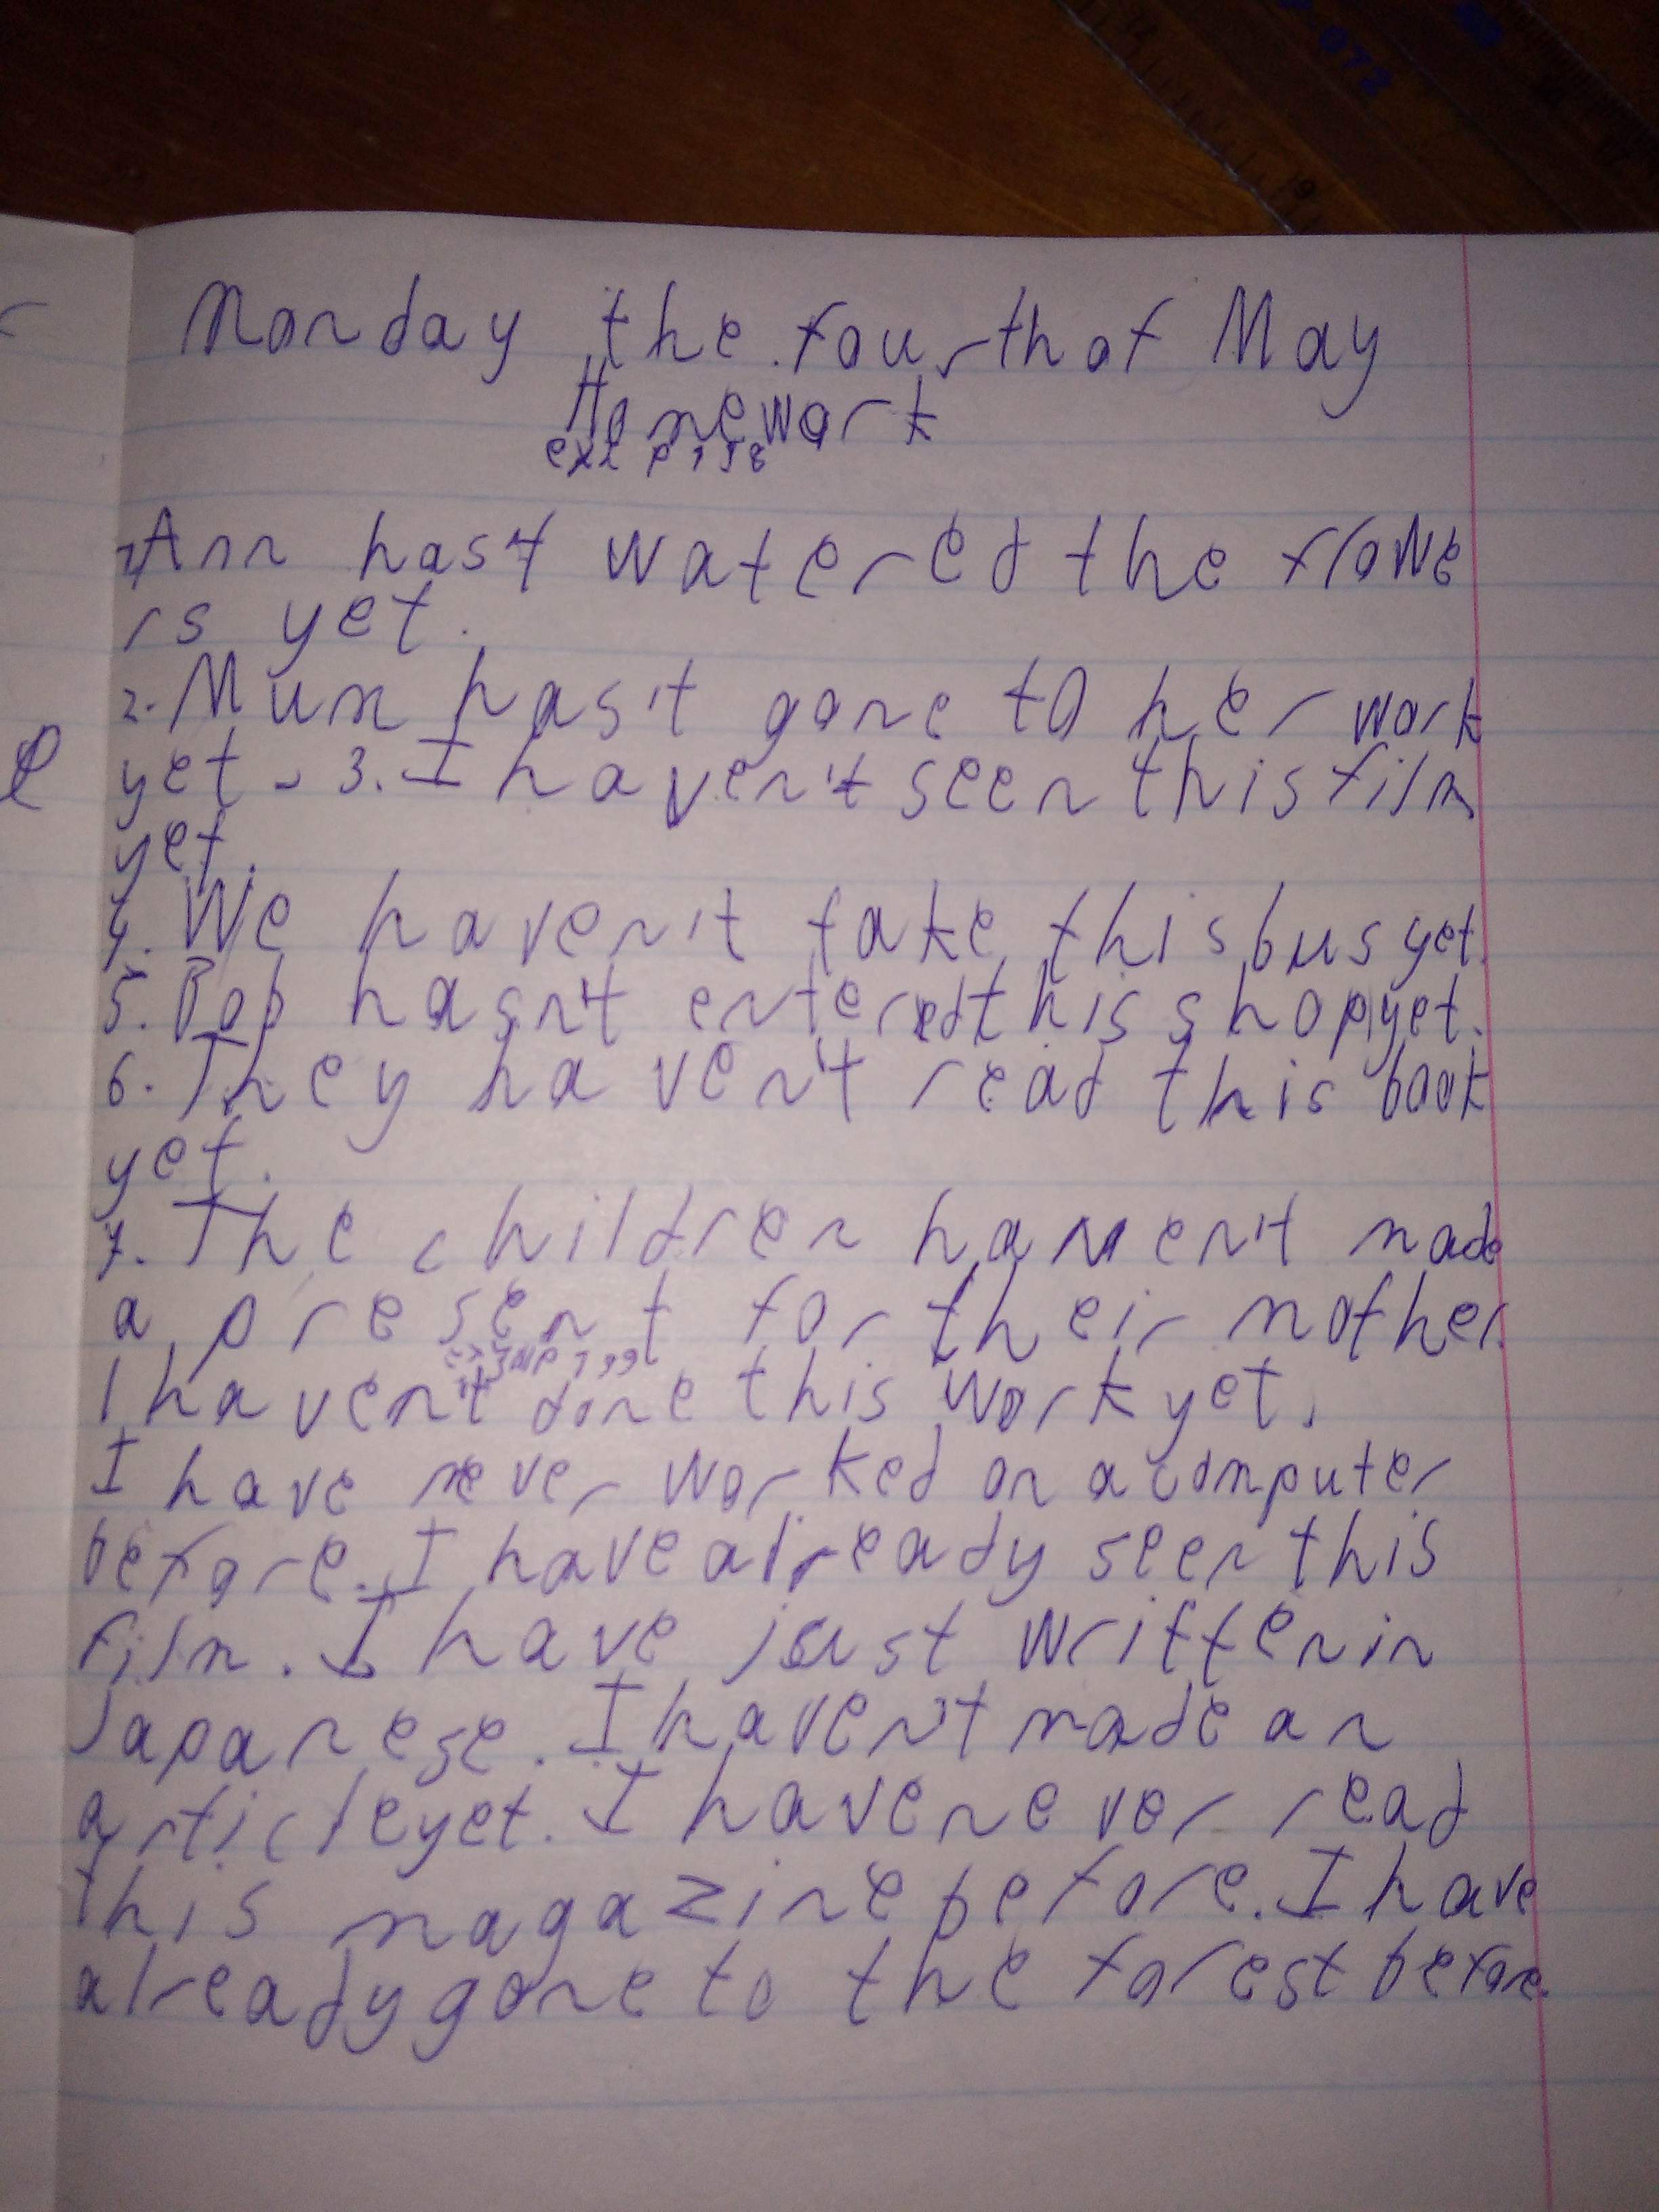 Monday the fourth of May
Homework
ex 2 p 198
1. Ann has't watered the flowe
rs yet.
2. Mum has't gone to her work
yet. 3. I haven't seen this film
yet.
4. We haven't take this bus yet.
5. Bob hasn't entered this shop yet.
6. They haven't read this book
yet.
7. The children haven't made
a present for their mother.
p 199
I haven't done this work yet.
I have never worked on a computer
before. I have already seen this
film. I have just written in
Japanese. I haven't made an
article yet. I have never read
this magazine before. I have
already gone to the forest before.